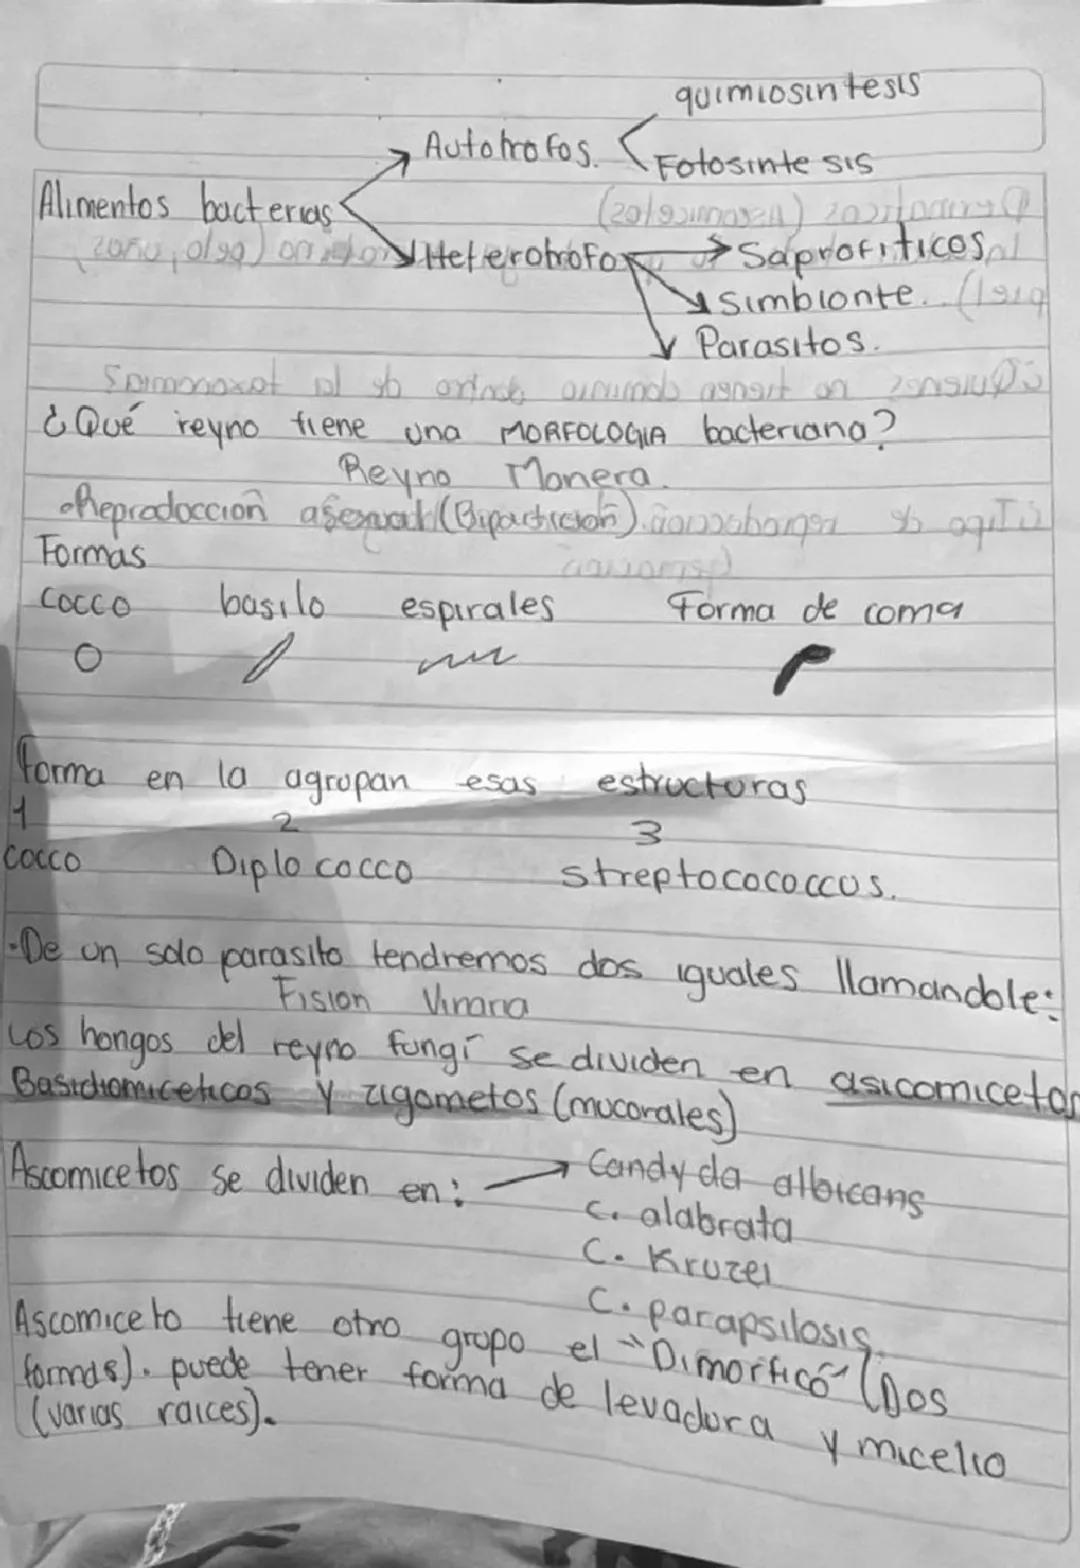 quimiosintesis
Autotrofos.
Fotosintesis
Alimentos bacterias
Heterotrofo
Saprofiticos
Simbionte.
Parasitos.
¿Qué reyno tiene una MORFOLOGIA bacteriana?
Reyno Monera.
-Reproducción asexual (Bipartición)
Formas
cocco basilo espirales Forma de coma
forma en la agrupan esas estructuras
1 2 3
cocco Diplo cocco streptocococcus.
-De un solo parasito tendremos dos iguales llamandole:
Fision Vinaria
Los hongos del reyno fungí se dividen en asicomicetos
Basidiomiceticos y zigometos (mucorales)
Ascomicetos se dividen en: Candyda albicans
C. alabrata
C. Kruzei
C. parapsilosis.
Ascomiceto tiene otro grupo el "Dimorficó" (Dos
formas). puede tener forma de levadura y micelio
(varias raices).